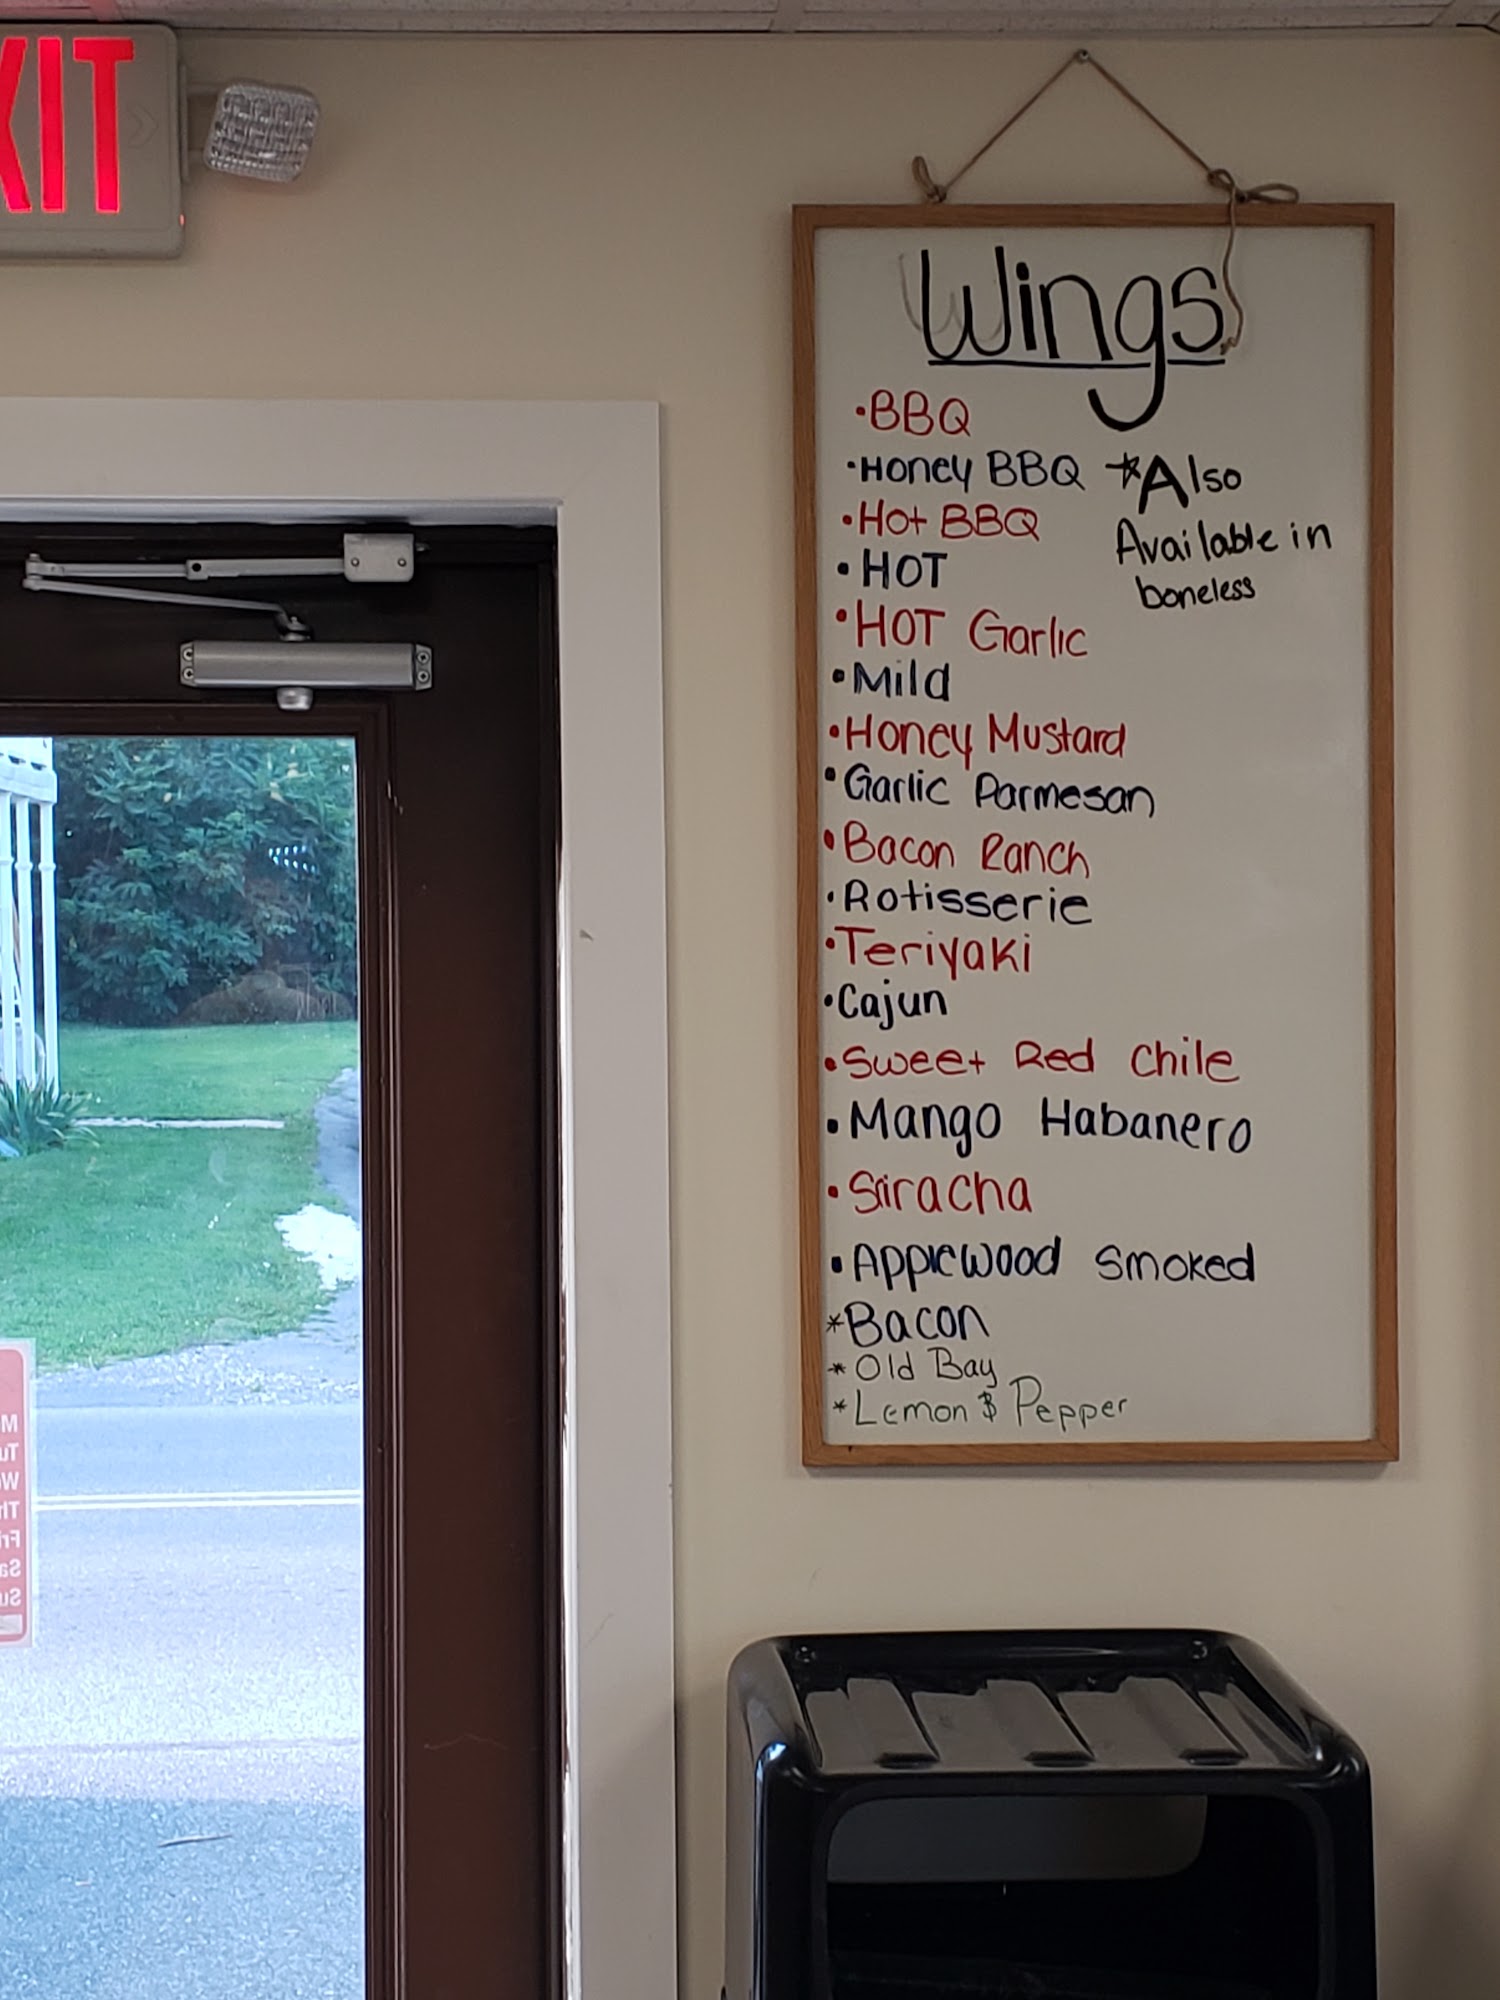 XIT
Wings
•BBQ
•Honey BBQ
*Also
Available in
boneless
•Hot BBQ
•HOT
•HOT Garlic
•Mild
•Honey Mustard
•Garlic Parmesan
•Bacon Ranch
•Rotisserie
•Teriyaki
•Cajun
•Sweet Red Chile
•Mango Habanero
•Sriracha
•Applewood Smoked
*Bacon
*Old Bay
*Lemon & Pepper
M
Tu
We
Th
Fri
Sa
Su